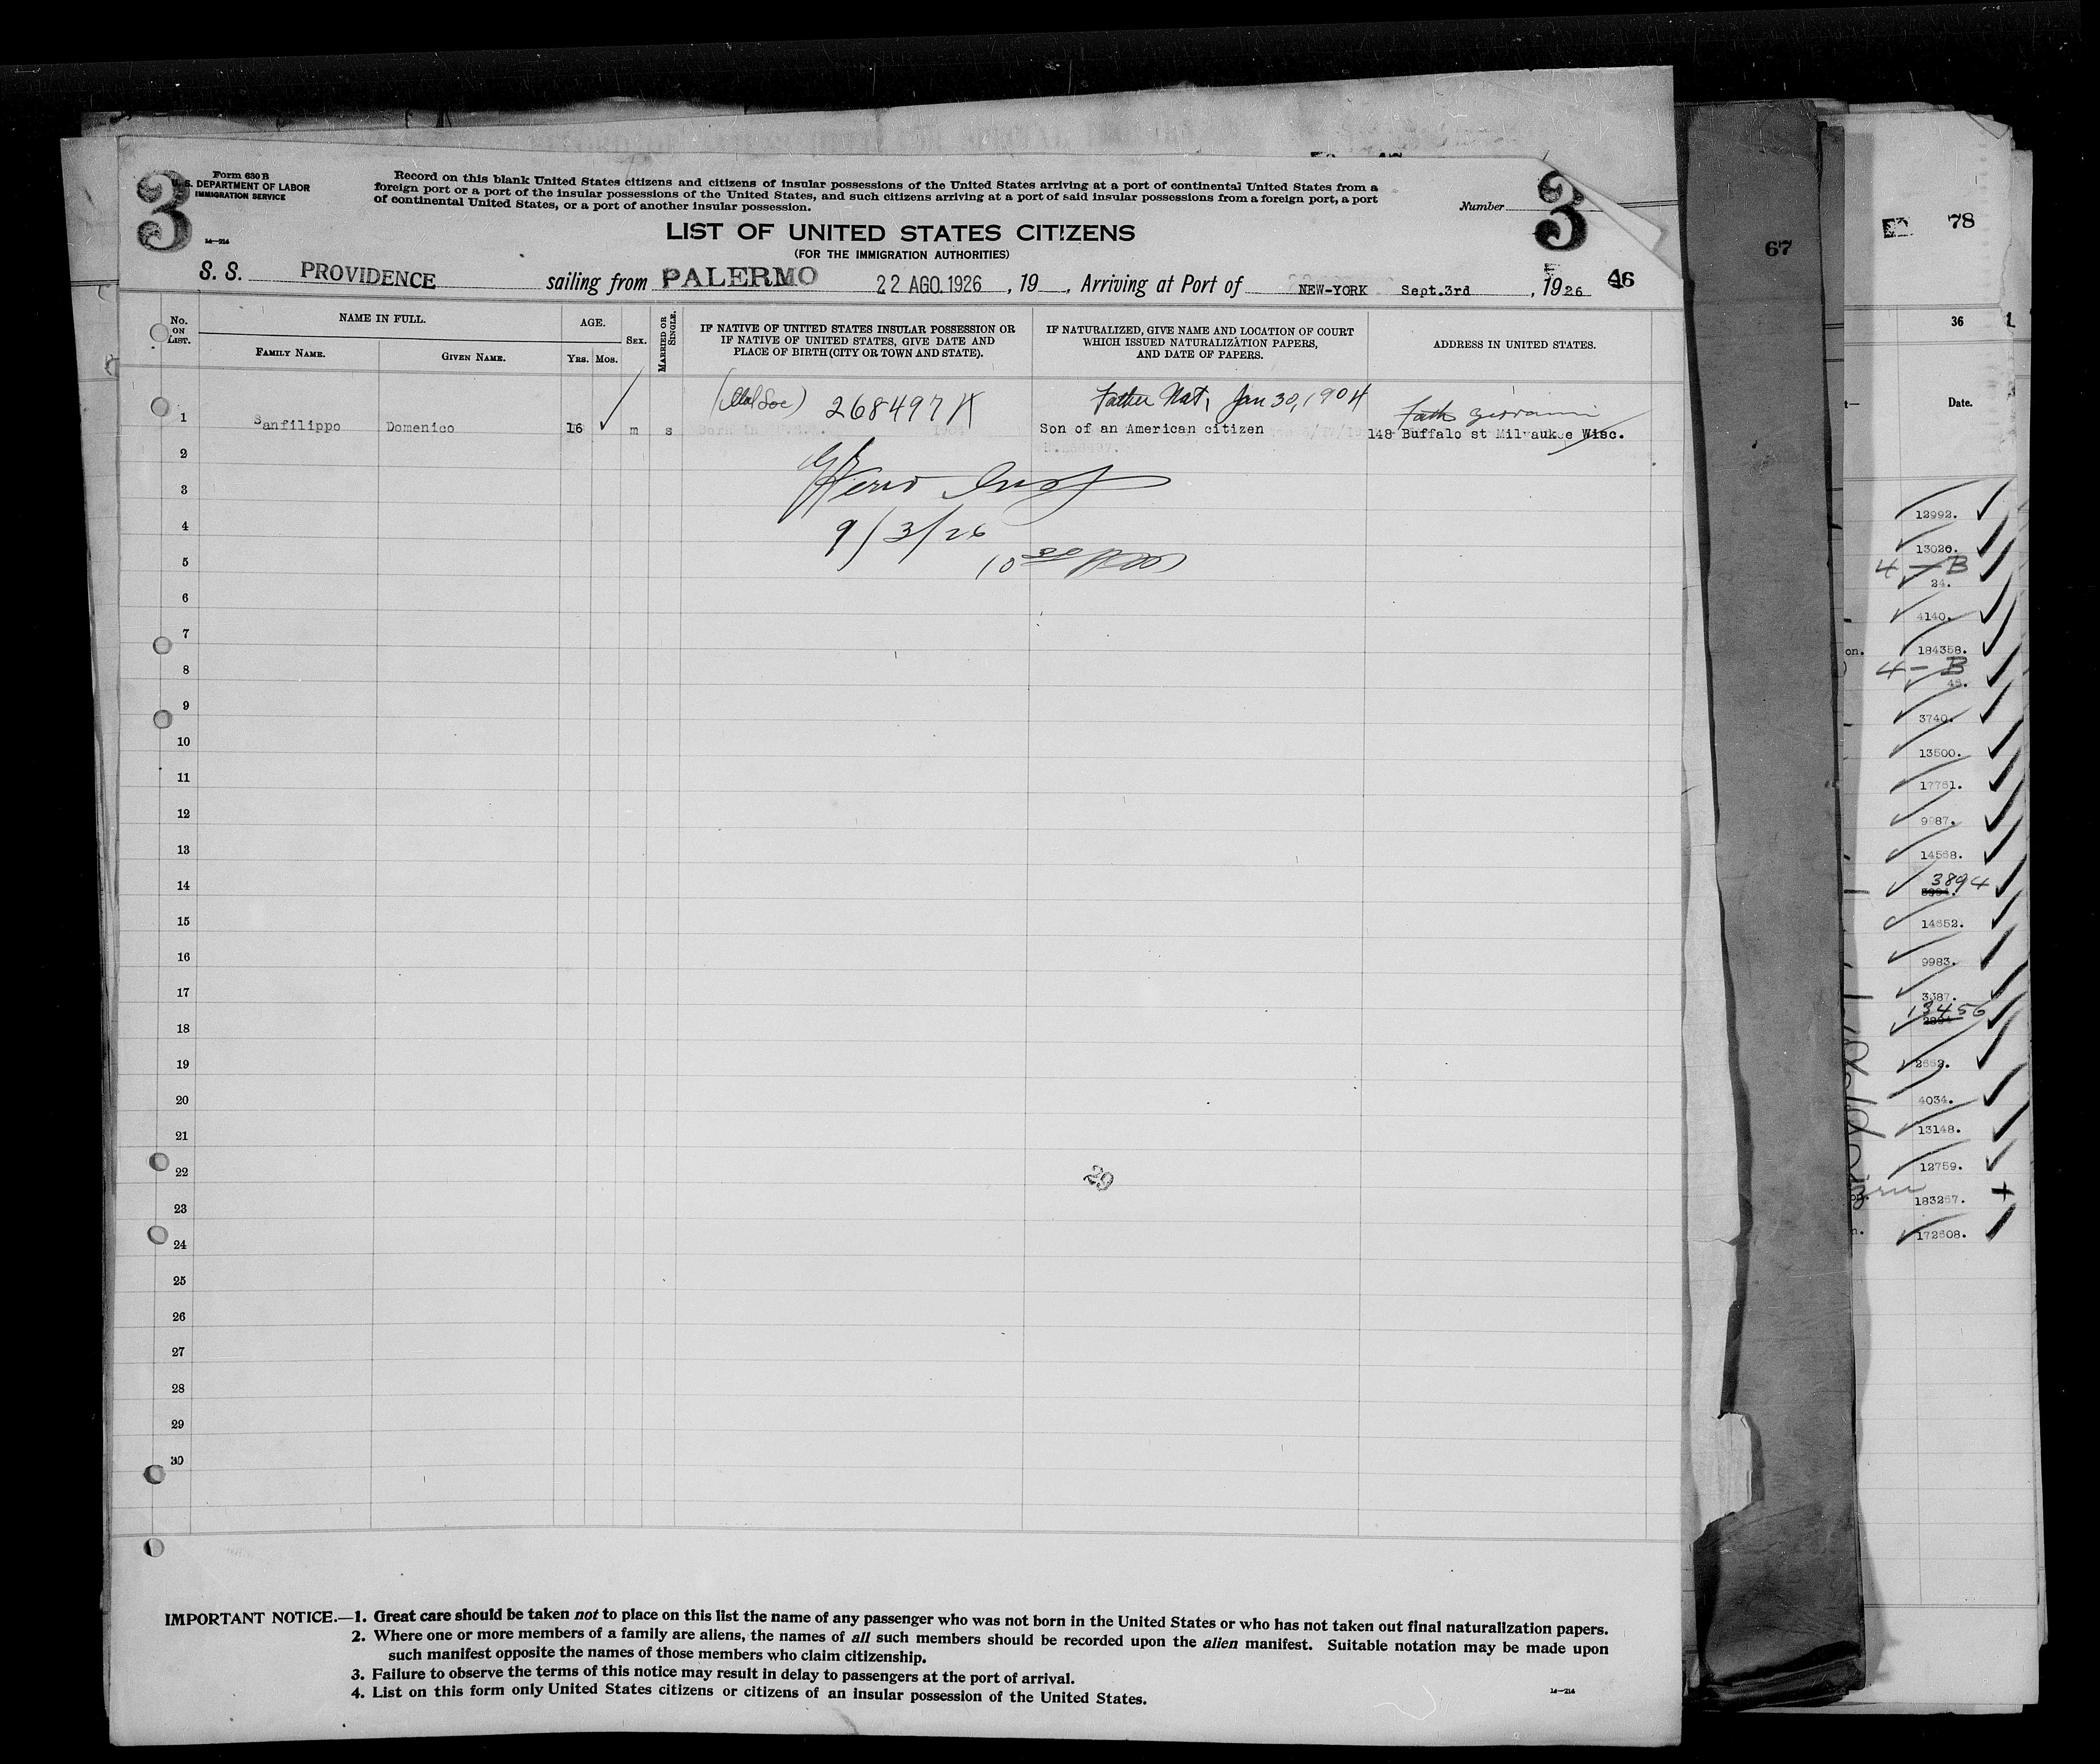 3
Form 630 B
U. S. DEPARTMENT OF LABOR
IMMIGRATION SERVICE
14—214
Record on this blank United States citizens and citizens of insular possessions of the United States arriving at a port of continental United States from a
foreign port or a port of the insular possessions of the United States, and such citizens arriving at a port of said insular possessions from a foreign port, a port
of continental United States, or a port of another insular possession.
Number 3
LIST OF UNITED STATES CITIZENS
(FOR THE IMMIGRATION AUTHORITIES)
S. S. PROVIDENCE sailing from PALERMO 22 AGO. 1926, 19 , Arriving at Port of NEW-YORK Sept.3rd , 1926 46
No. ON LIST.
NAME IN FULL.
FAMILY NAME.
GIVEN NAME.
AGE.
YRS. MOS.
SEX.
MARRIED OR SINGLE.
IF NATIVE OF UNITED STATES INSULAR POSSESSION OR
IF NATIVE OF UNITED STATES, GIVE DATE AND
PLACE OF BIRTH (CITY OR TOWN AND STATE).
IF NATURALIZED, GIVE NAME AND LOCATION OF COURT
WHICH ISSUED NATURALIZATION PAPERS,
AND DATE OF PAPERS.
ADDRESS IN UNITED STATES.
268497 K
Father Nat. Jan 30, 1904
Fath Giovanni
1 Sanfilippo Domenico 16 m s Son of an American citizen 148 Buffalo st Milvaukee Wisc.
2
3
4
9/3/26
5
10 30
6
7
8
9
10
11
12
13
14
15
16
17
18
19
20
21
22
29
23
24
25
26
27
28
29
30
IMPORTANT NOTICE.—1. Great care should be taken not to place on this list the name of any passenger who was not born in the United States or who has not taken out final naturalization papers.
2. Where one or more members of a family are aliens, the names of all such members should be recorded upon the alien manifest. Suitable notation may be made upon
such manifest opposite the names of those members who claim citizenship.
3. Failure to observe the terms of this notice may result in delay to passengers at the port of arrival.
4. List on this form only United States citizens or citizens of an insular possession of the United States.
14—214
67
78
36
Date.
12992.
13026.
4 — B
24.
4140.
on. 184358.
4 — B
48.
3740.
13500.
17761.
9987.
14568.
3894
14652.
9983.
3387.
13456
2652.
4034.
13148.
12759.
183267.
172608.